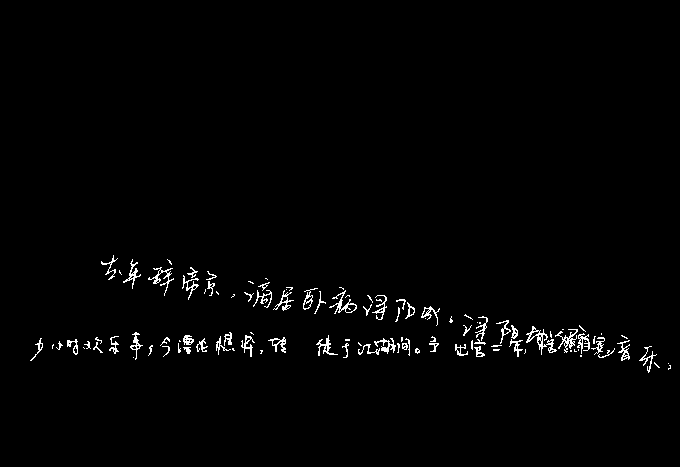 去年辞帝京，谪居卧病浔阳城。浔阳音乐，
少小时欢乐事，今漂沦憔悴，转徙于江湖间。予出官二年，